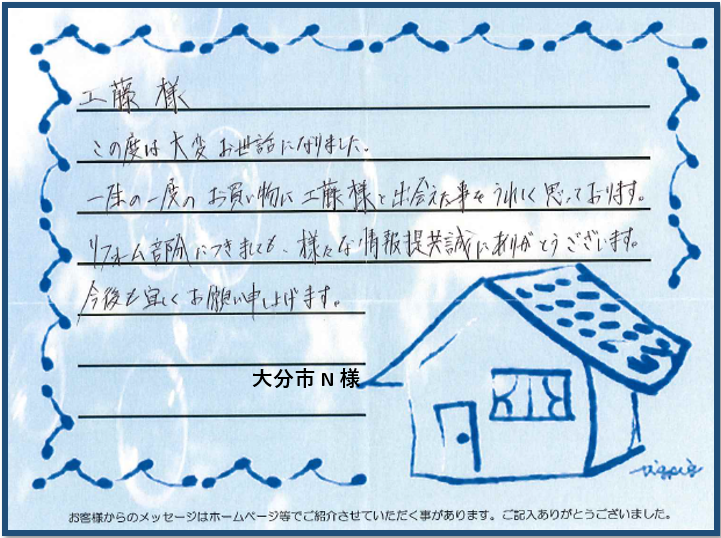 工藤 様
この度は 大変 お世話になりました。
一生の一度の お買い物に 工藤様と出会えた事をうれしく思っております。
リフォーム部分につきましても、様々な情報提供誠にありがとうございます。
今後も宜しくお願い申し上げます。
大分市 N 様
お客様からのメッセージはホームページ等でご紹介させていただく事があります。ご記入ありがとうございました。